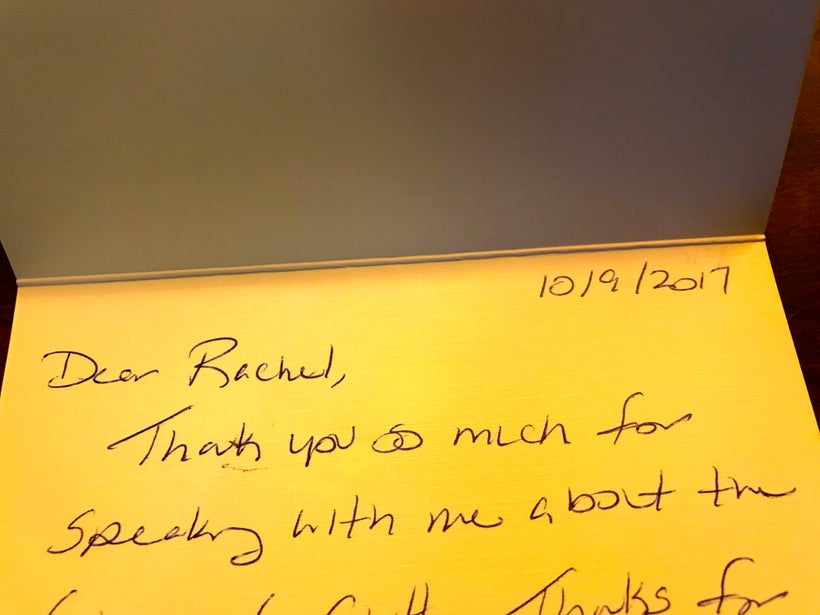 10/9/2017
Dear Rachel,
Thank you so much for
speaking with me about the
Thanks for